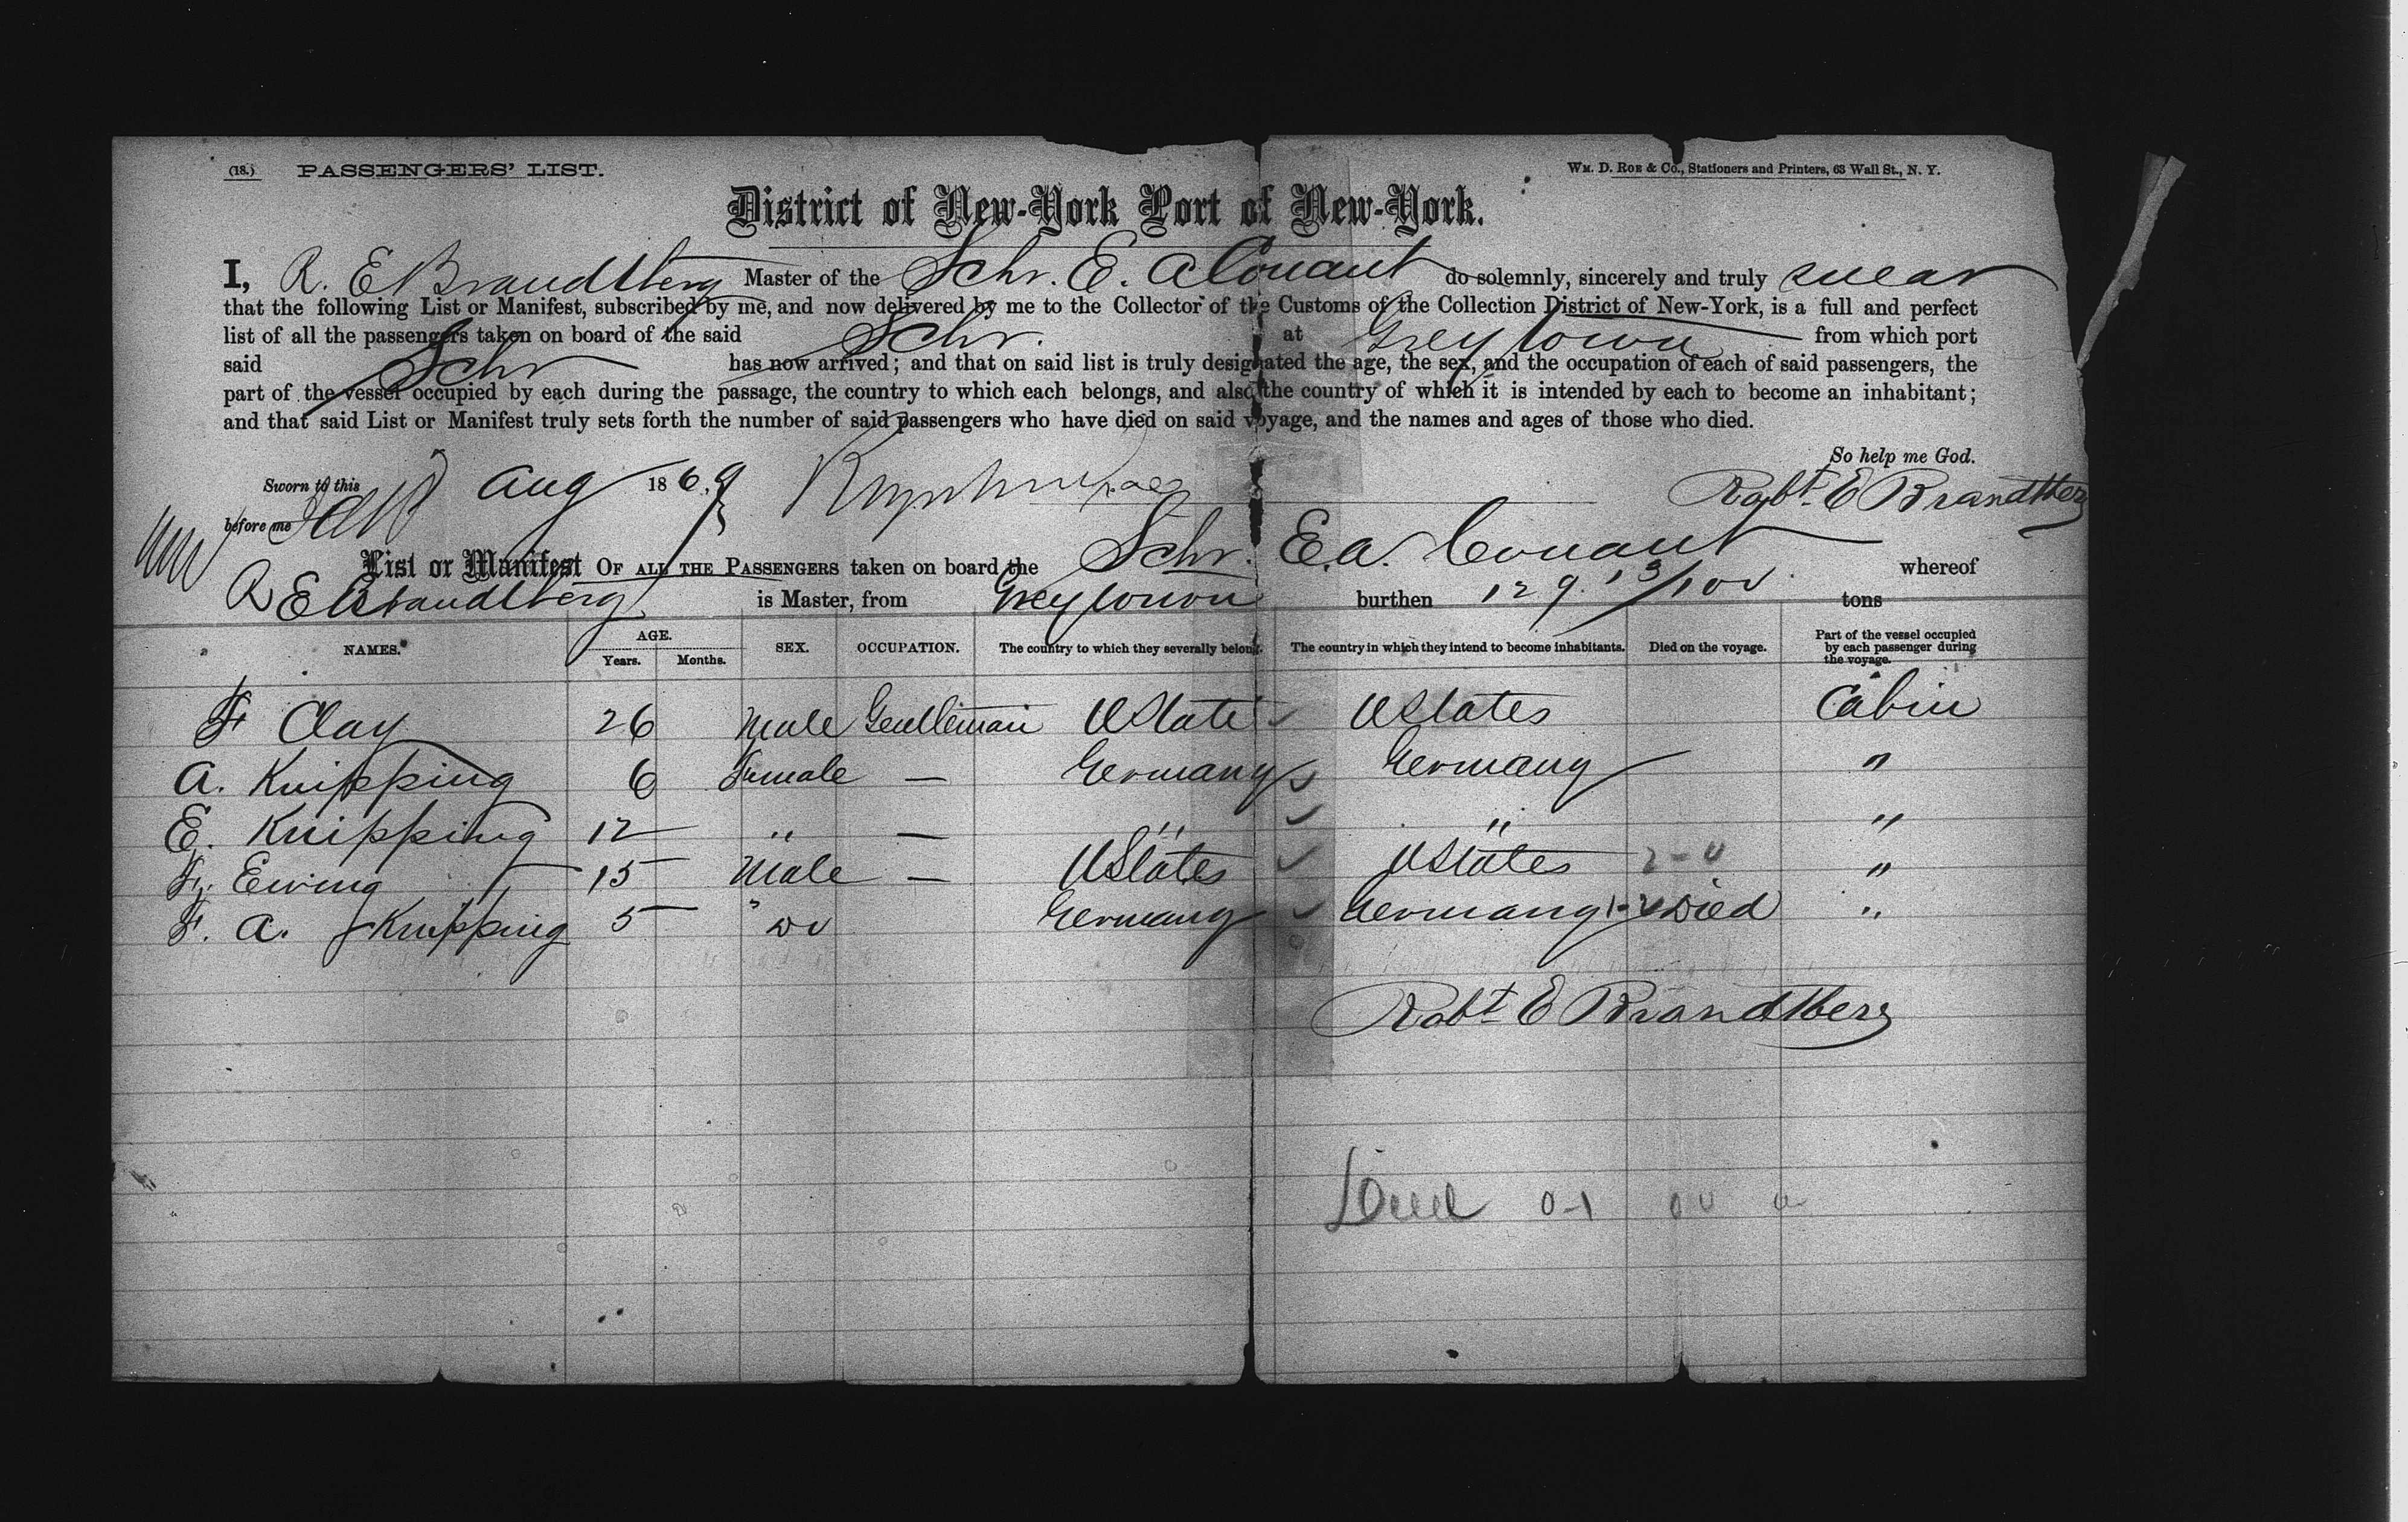 (18.) PASSENGERS' LIST.
WM. D. ROE & Co., Stationers and Printers, 63 Wall St., N. Y.
District of New-York Port of New-York.
I, R. E Brandtberg Master of the Schr. E. A Conant do solemnly, sincerely and truly swear
that the following List or Manifest, subscribed by me, and now delivered by me to the Collector of the Customs of the Collection District of New-York, is a full and perfect
list of all the passengers taken on board of the said Schr. at Greytown from which port
said Schr has now arrived; and that on said list is truly designated the age, the sex, and the occupation of each of said passengers, the
part of the vessel occupied by each during the passage, the country to which each belongs, and also the country of which it is intended by each to become an inhabitant;
and that said List or Manifest truly sets forth the number of said passengers who have died on said voyage, and the names and ages of those who died.
So help me God.
Sworn to this Aug 1869
Robt E Brandtberg
before me
List or Manifest OF ALL THE PASSENGERS taken on board the Schr. E. A. Conant whereof
R E Brandtberg is Master, from Greytown burthen 129 13/100 tons
NAMES. AGE. Years. Months. SEX. OCCUPATION. The country to which they severally belong. The country in which they intend to become inhabitants. Died on the voyage. Part of the vessel occupied by each passenger during the voyage.
F Clay 26 Male Gentleman UState UStates Cabin
A. Knipping 6 Female — Germany Germany "
E. Knipping 12 " — " " "
F. Ewing 15 Male — UStates UStates "
F. A. Knipping 5 " Do Germany Germany Died "
Robt E Brandtberg
0-1